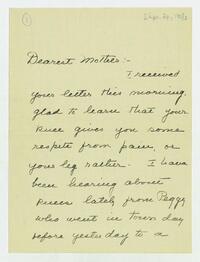 1
Sept. 20, 1918
Dearest Mother:-
I received
your letter this morning.
glad to learn that your
knee gives you some
respite from pain, or
your leg rather. I have
been hearing about
knees lately from Peggy
who went in town day
before yesterday to a